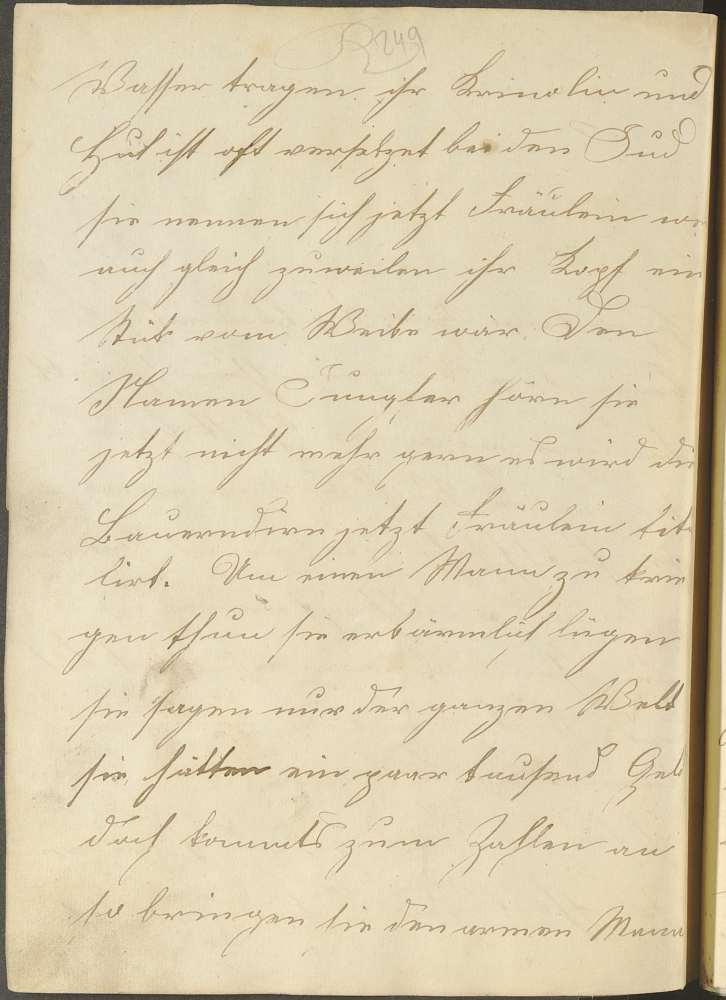 249
Wasser tragen. ihr Krinolin und
Hut ist oft versetzet bei den Jud
sie nennen sich jetzt Fräulein
auch gleich zuweilen ihr Kopf ein
Stük vom Weibe wär. Den
Namen Jungfer hörn sie
jetzt nicht mehr gern es wird die
Bauerndirn jetzt Fräulein tit
lirt. Um einen Mann zu krie
gen thun sie erbärmlich lügen
sie sagen nur der ganzen Welt
sie hätten ein paar tausend Geld
doch kommts zum Zahlen an
so bringen sie den armen Mann